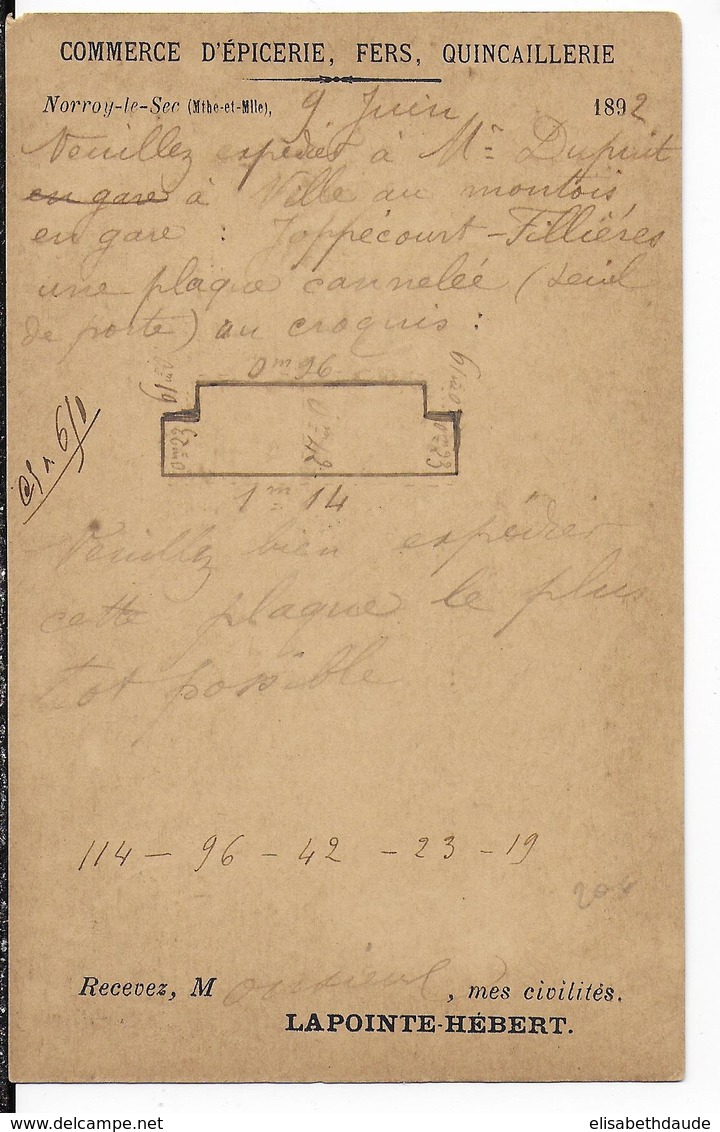 COMMERCE D'ÉPICERIE, FERS, QUINCAILLERIE
Norroy-le-Sec (Mthe-et-Mlle), 9 Juin 1892
Veuillez expédier à Mr Dupuit
en gare à Ville au montois
en gare : Joppécourt-Fillières
une plaque cannelée (seuil
de porte) au croquis :
0m96
0m19
0m19
0m23
0m42
0m23
1m14
Veuillez bien expédier
cette plaque le plus
tot possible
114 - 96 - 42 - 23 - 19
Recevez, Monsieur, mes civilités.
LAPOINTE-HÉBERT.
delcampe.net
elisabethdaude